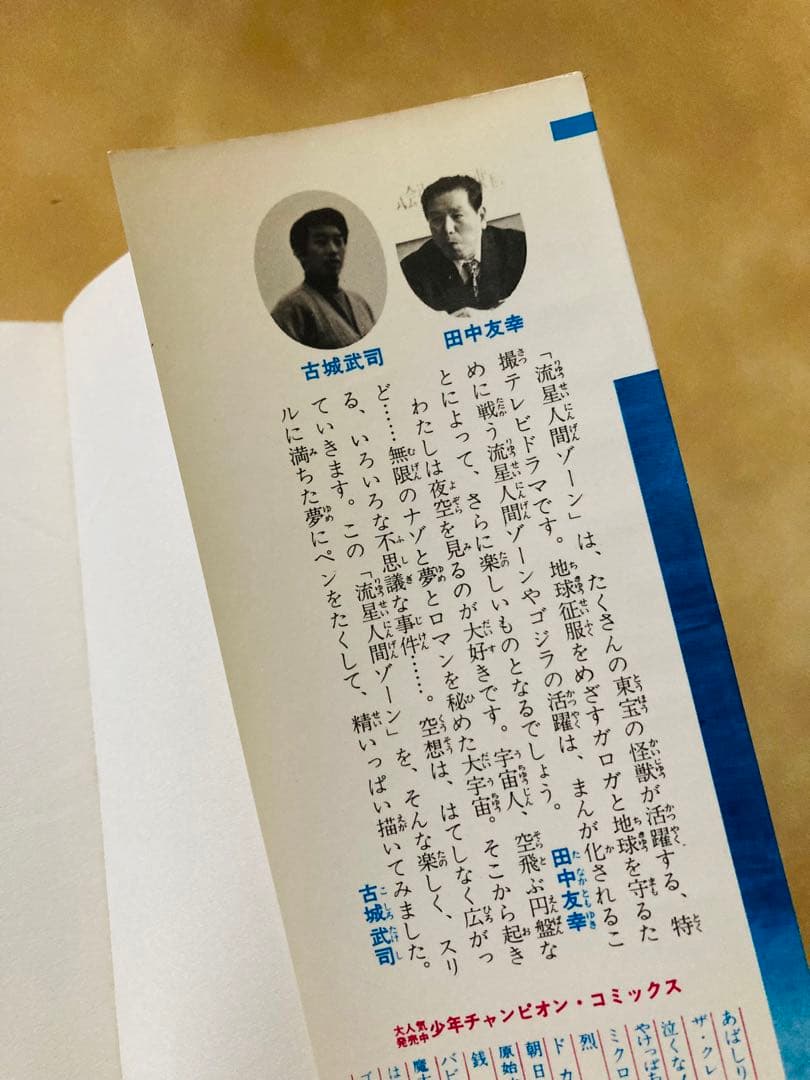 田中友幸
古城武司
「流星人間ゾーン」は、たくさんの東宝の怪獣が活躍する、特
撮テレビドラマです。地球征服をめざすガロガと地球を守るた
めに戦う流星人間ゾーンやゴジラの活躍は、まんが化されるこ
とによって、さらに楽しいものとなるでしょう。
田中友幸
わたしは夜空を見るのが大好きです。宇宙人、空飛ぶ円盤な
ど……無限のナゾと夢とロマンを秘めた大宇宙。そこから起き
る、いろいろな不思議な事件……。空想は、はてしなく広がっ
ていきます。この「流星人間ゾーン」を、そんな楽しく、スリ
ルに満ちた夢にペンをたくして、精いっぱい描いてみました。
古城武司
大人気発売中 少年チャンピオン・コミックス
あばしり
ザ・クレ
泣くな!
やけっぱち
ミクロ
烈
ドカ
朝日
原始
銭
バビ
魔
は